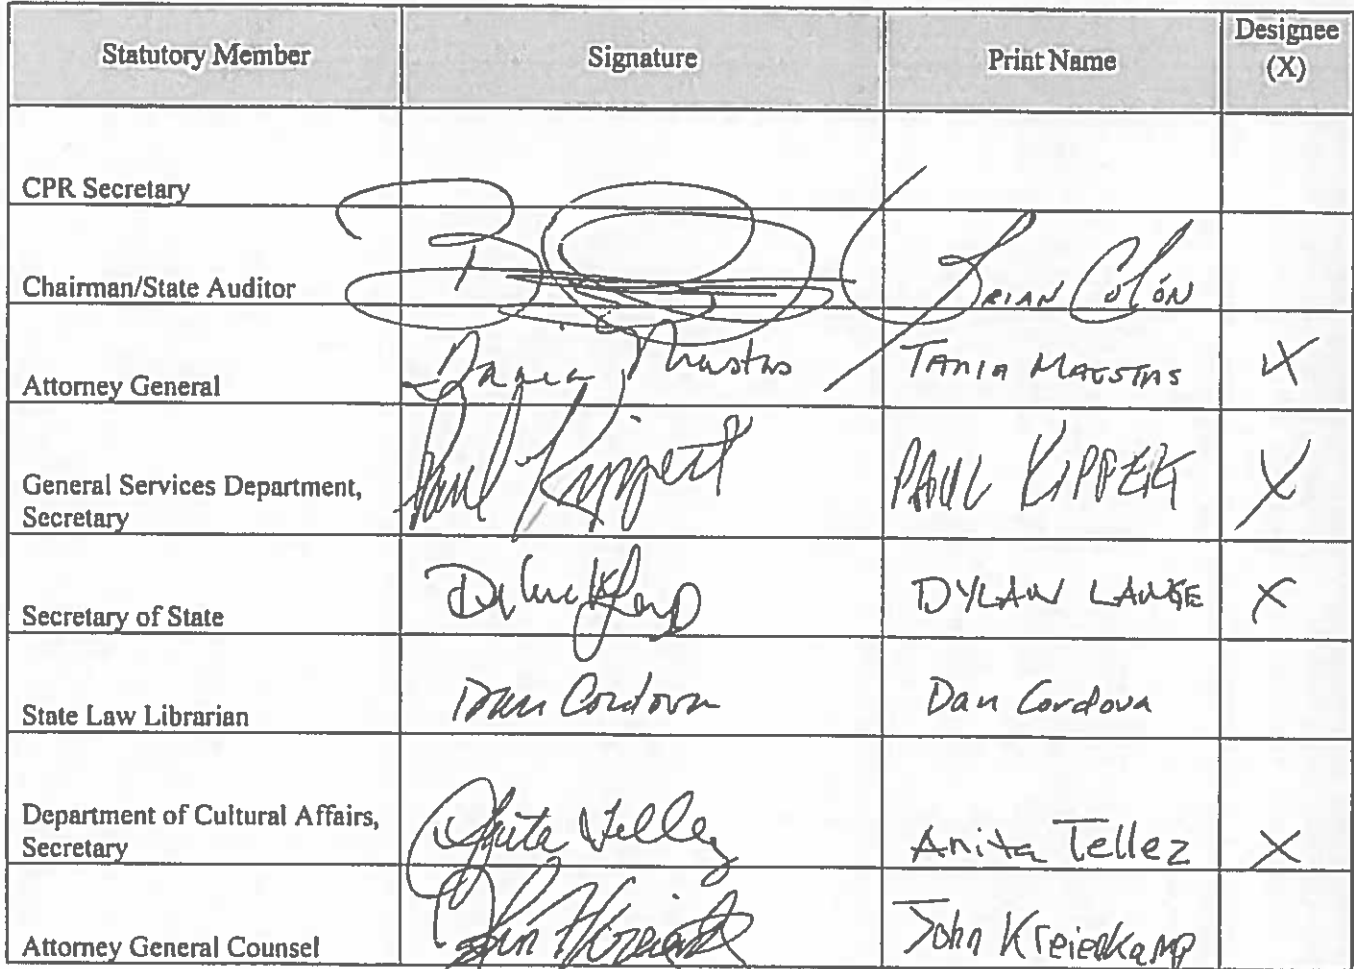 Statutory Member Signature Print Name Designee (X)
CPR Secretary
Chairman/State Auditor Brian Colón
Attorney General Tania Maestas Tania Maestas X
General Services Department, Secretary Paul Kippert PAUL KIPPERT X
Secretary of State DYLAN LANGE X
State Law Librarian Dan Cordova Dan Cordova
Department of Cultural Affairs, Secretary Anita Tellez Anita Tellez X
Attorney General Counsel John Kreienkamp